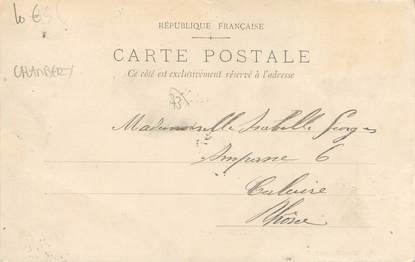 10 €
RÉPUBLIQUE FRANÇAISE
CARTE POSTALE
CHAMBERY
Ce côté est exclusivement réservé à l'adresse
73
Mademoiselle Isabelle Georges
6
Caluire
Rhône